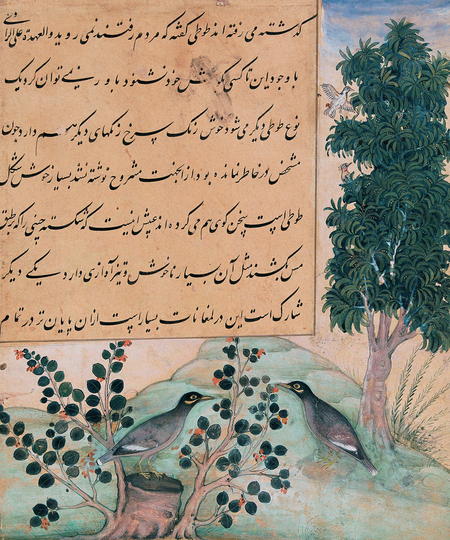 گذشته می رفته اند طوطی گفته که مردم رفتند نمی روید والعهدة علی الراوی
با وجود این تا کسی بگوش خود نشنود باور نمی توان کرد یک
نوع طوطی دیگر می شود خوش رنگ سرخ رنگهای دیگر هم دارد چون
مشخص در خاطر نمانده بود از آنجهت مشروح نوشته نشد بسیار خوش شکل
طوطی است سخن گوی هم می کرده اند عیبش اینست که شکسته چینی را که بر طبق
مس بکشند مثل آن بسیار ناخوش و تیز آوازی دارد یکی دیگر
شارک است این در لمغانات بسیار است از آن پایان تر در تمام